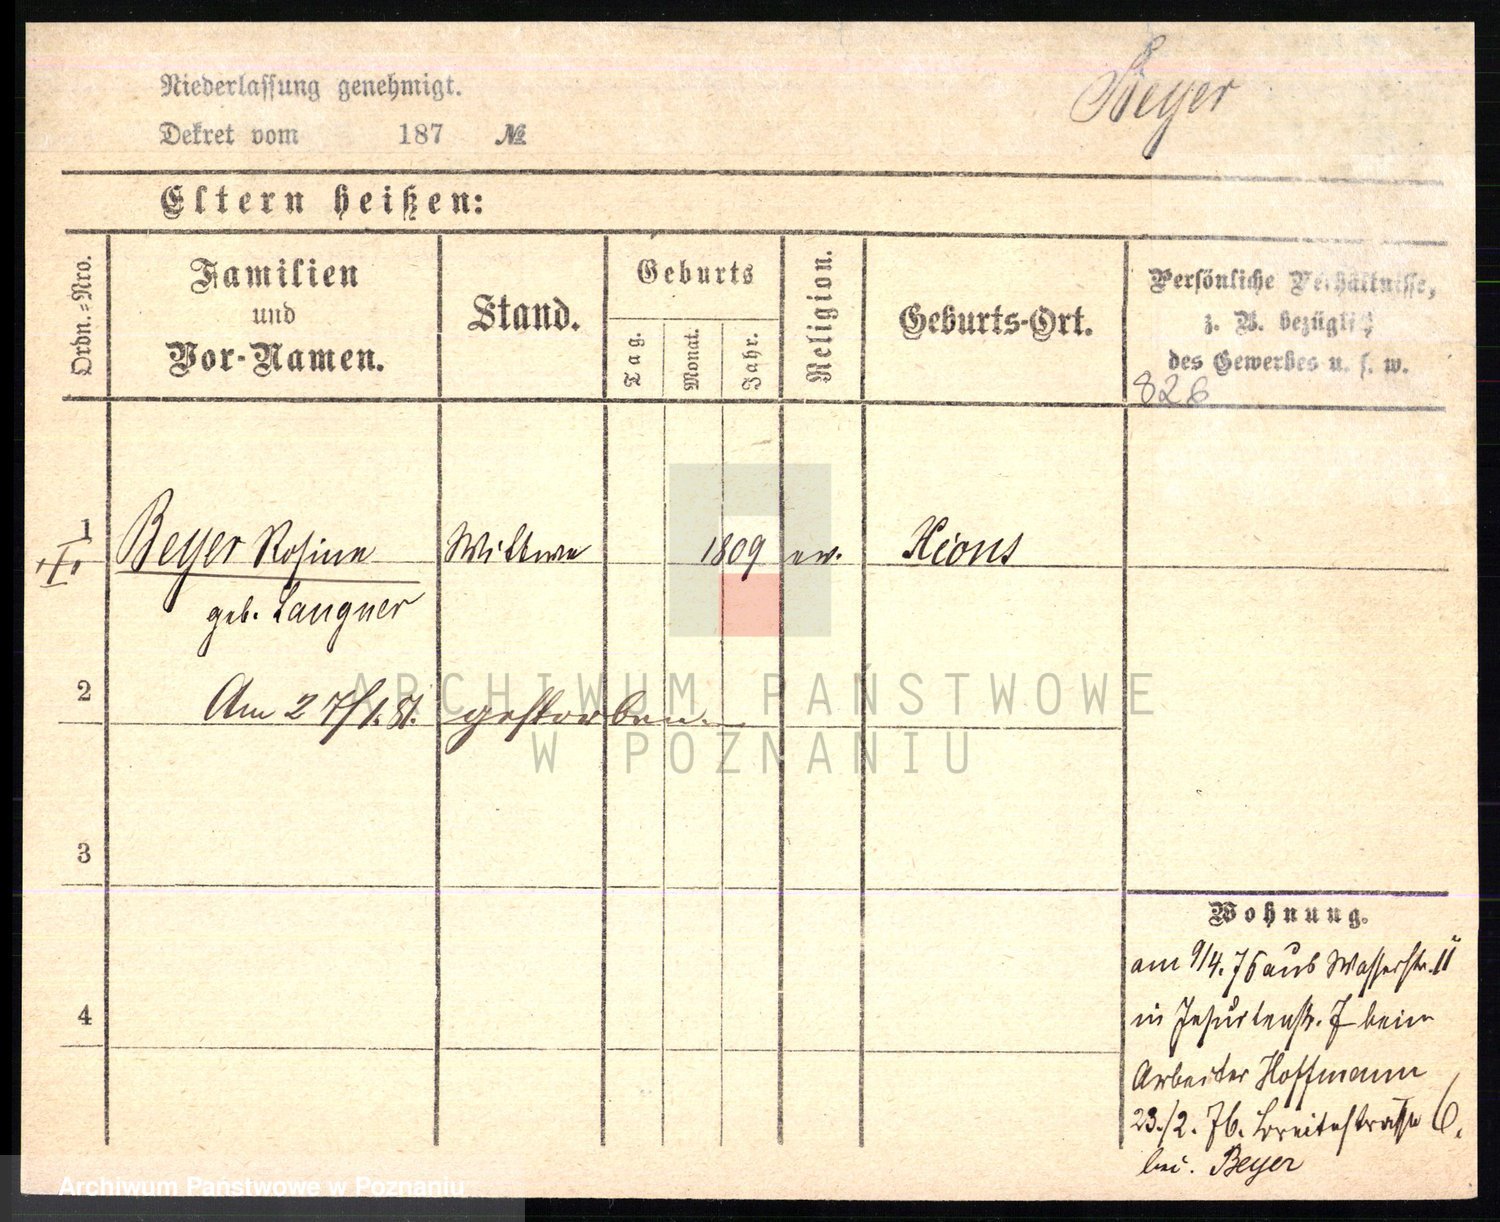 Beyer
Niederlassung genehmigt.
Dekret vom 187 №
Eltern heißen:
Ordn.-Nro.
Familien
und
Vor-Namen.
Stand.
Geburts
Tag.
Monat.
Jahr.
Religion.
Geburts-Ort.
Persönliche Verhältnisse,
z. B. bezüglich
des Gewerbes u. s. w.
826
1 Beyer Rosina Wittwe 1809 ev. Xions
geb. Langner
2 Am 27/1. 81. gestorben.
3
4
Wohnung.
am 9/4. 75 aus Wasserstr. 11
in Jesuitenstr. 7 beim
Arbeiter Hoffmann
23./2. 76. Breitestrasse 6.
bei. Beyer
ARCHIWUM PAŃSTWOWE
W POZNANIU
Archiwum Państwowe w Poznaniu